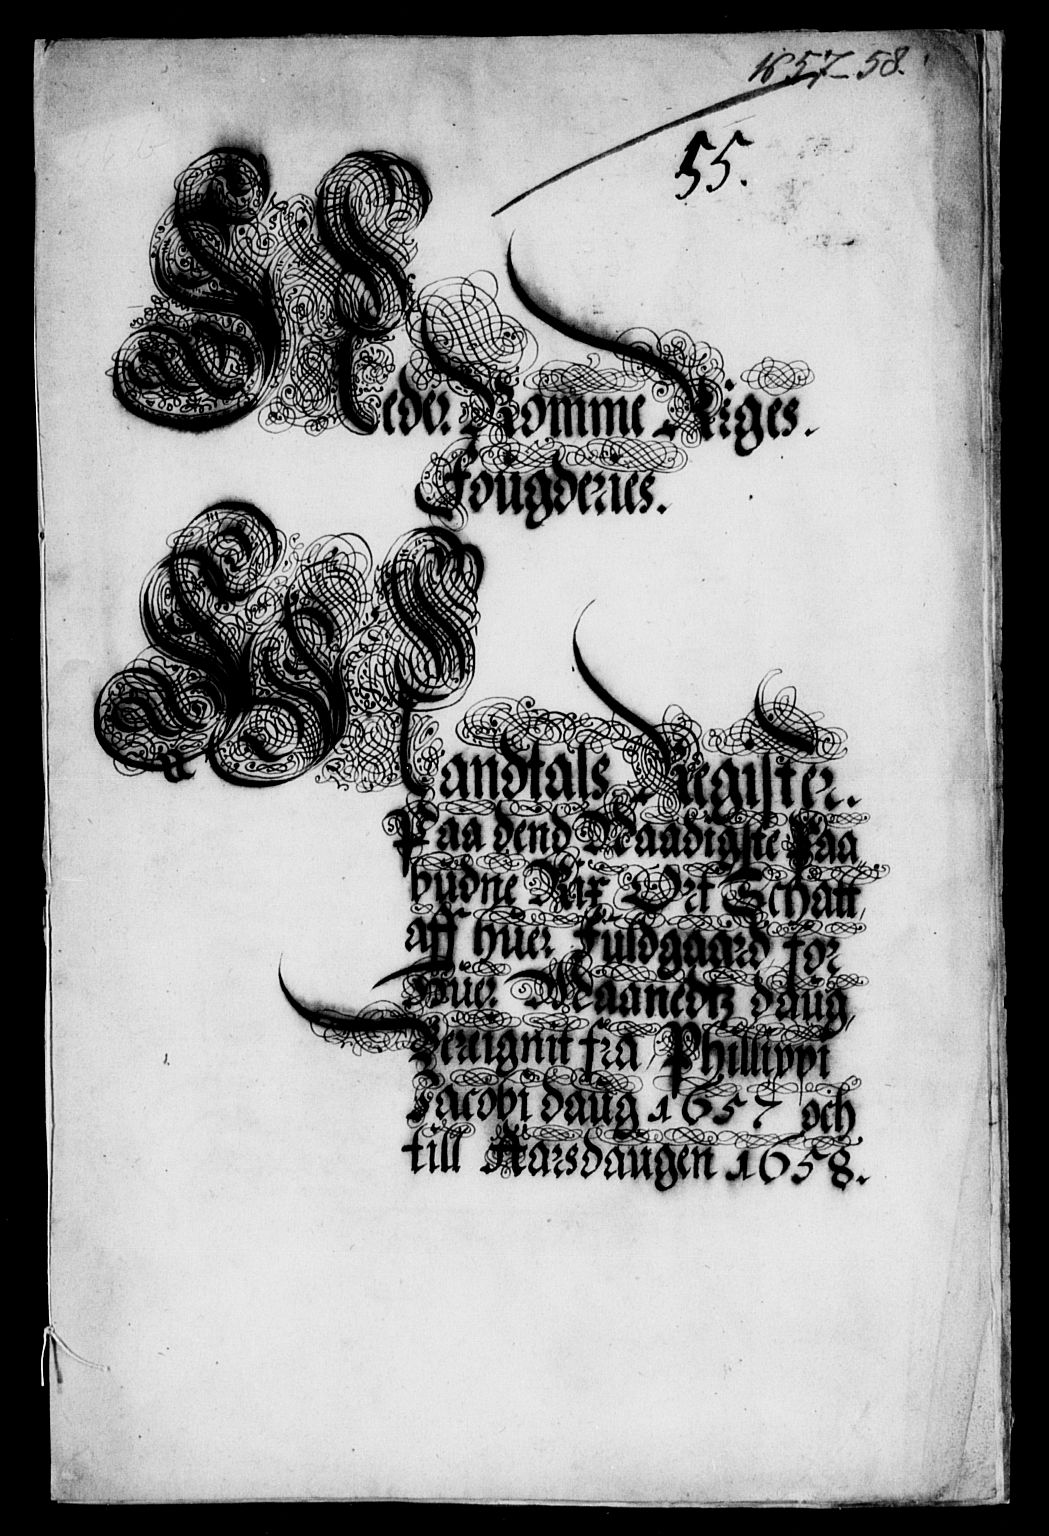 1657-58.
55.
Neder Romme Riges.
Fougderies.
Mandtals Register.
Paa dend Naadigste Paa
budne Rix Ort Schatt,
aff huer Fuldgaard, for
Huer Maanedtz daug,
Bereignit fra Phillippi
Jacobi daug 1657 och
till Aarsdaugen 1658.